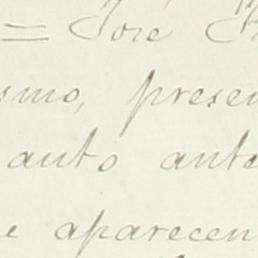 = José
smo, presen
auto ante
e aparecen